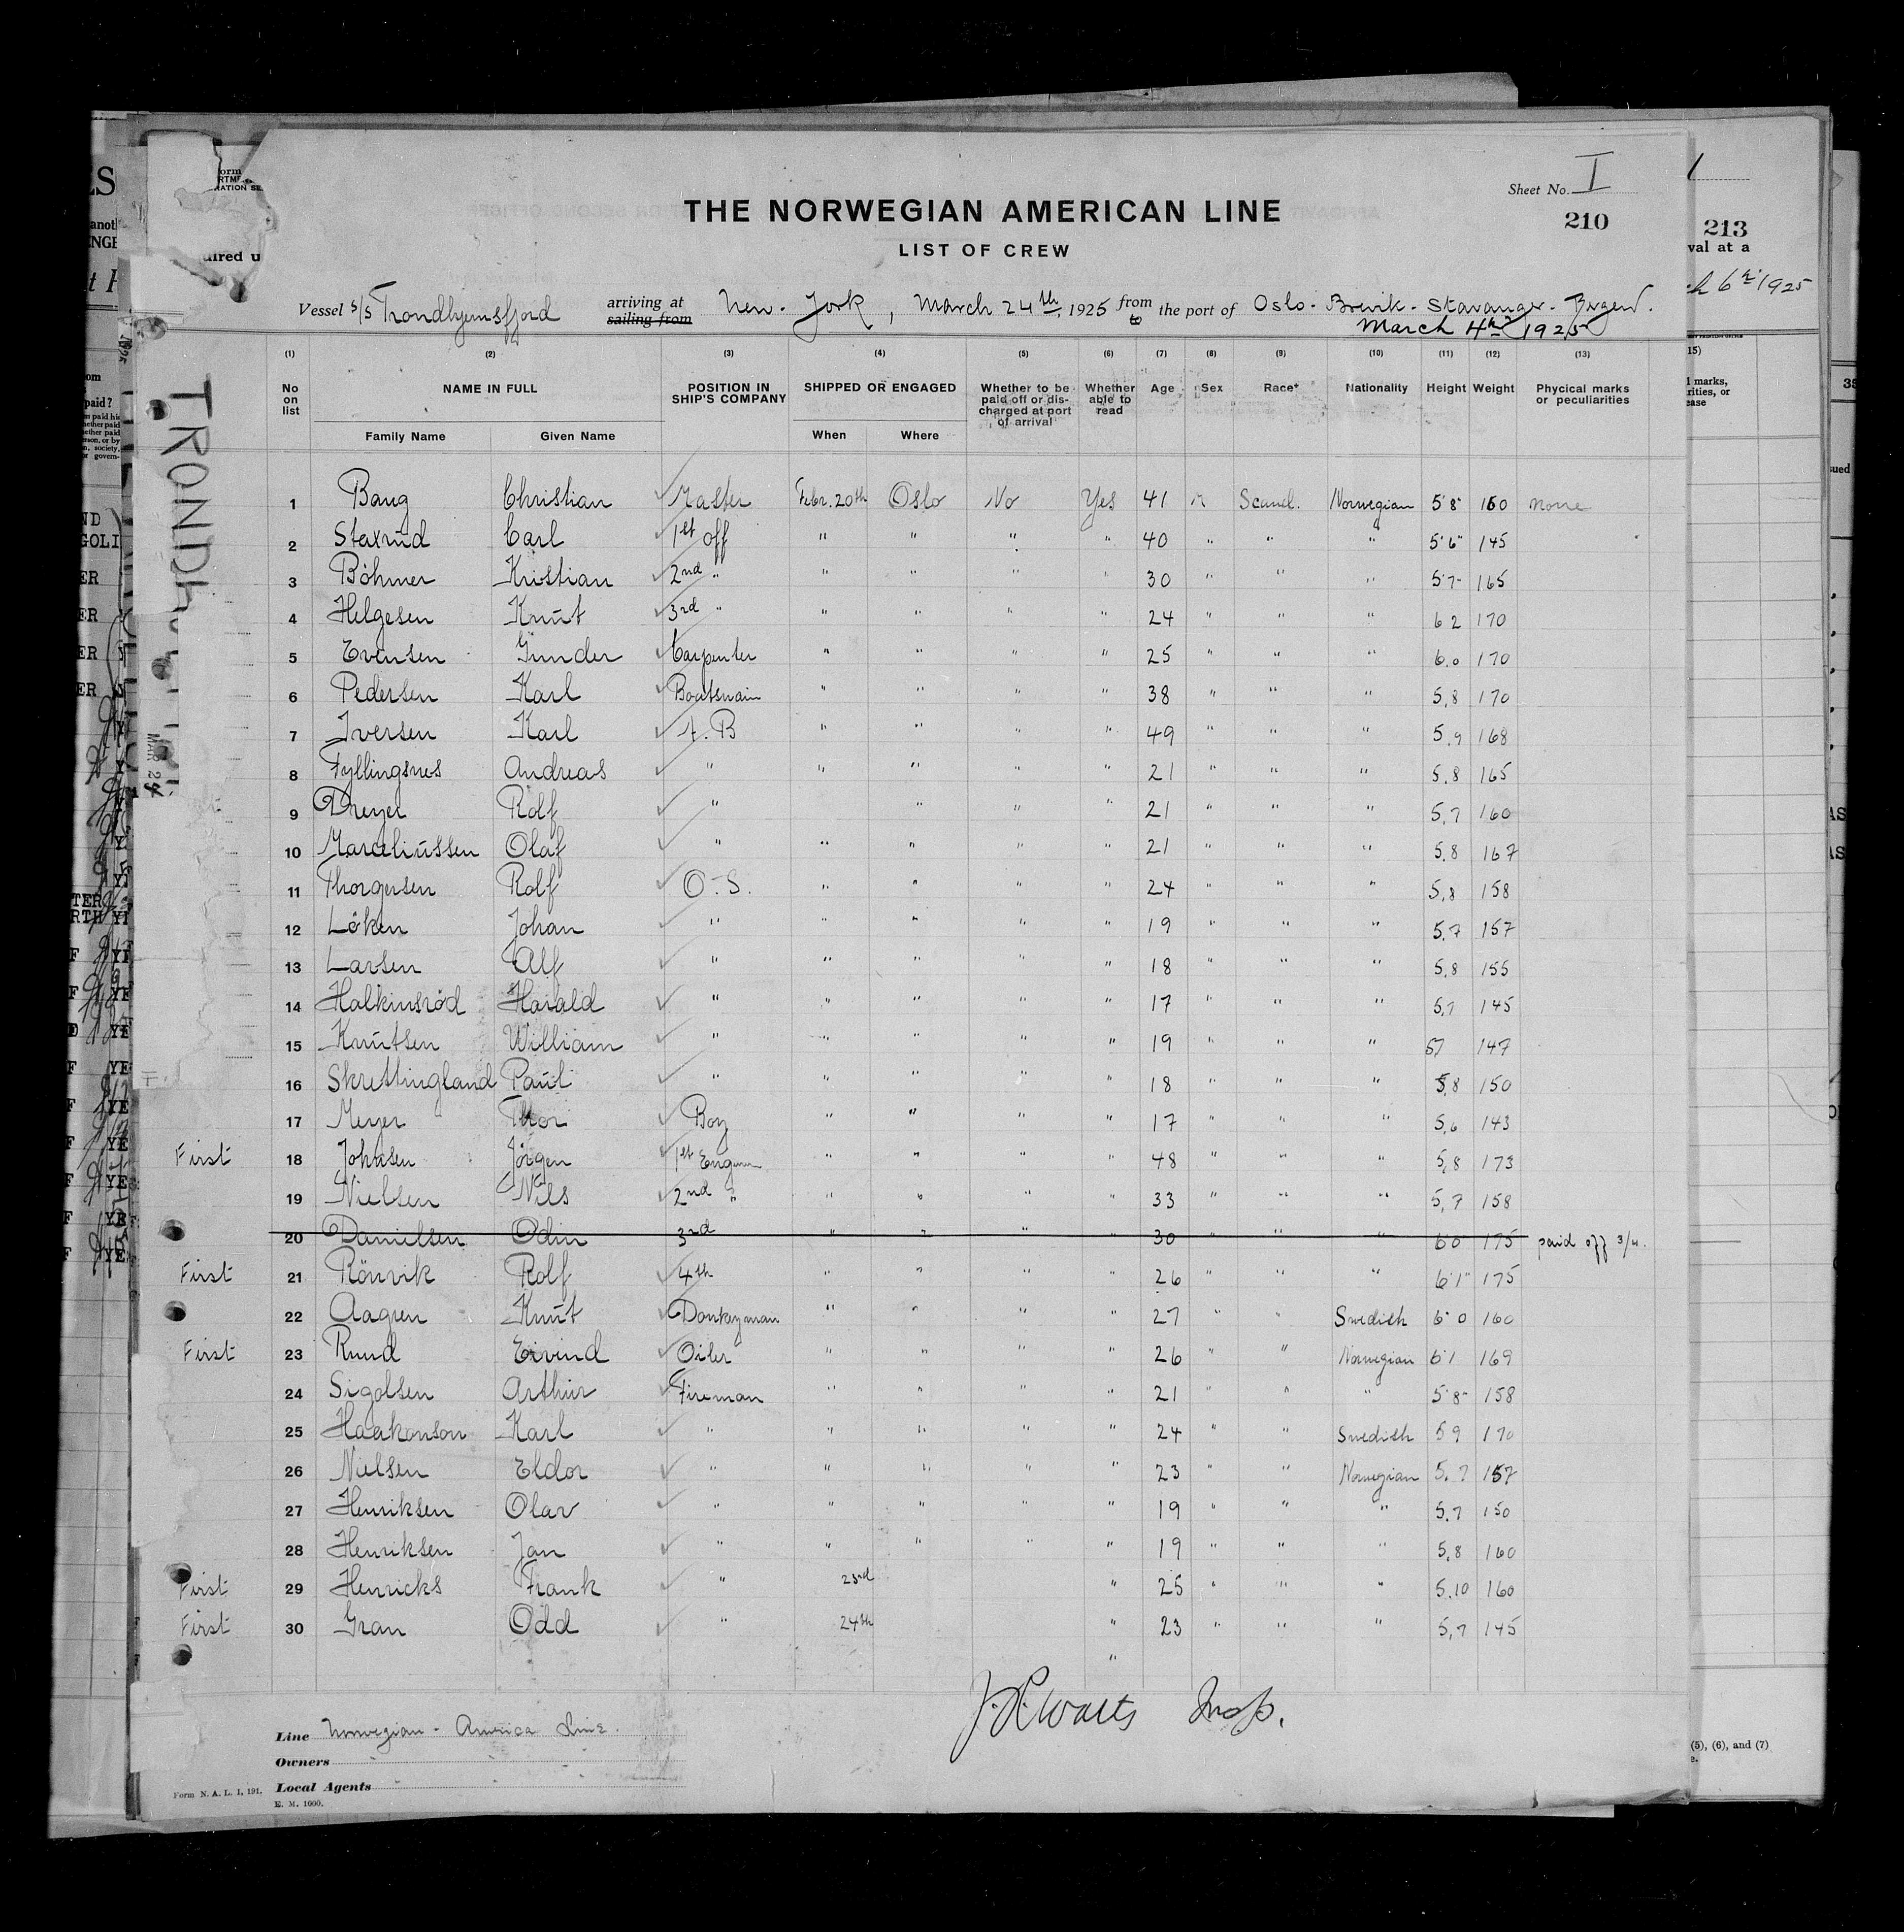 Sheet No. I
THE NORWEGIAN AMERICAN LINE
210
213
LIST OF CREW
uired u
val at a
Vessel s/s Trondhjemsfjord arriving at sailing from New-York, March 24th, 1925 from to the port of Oslo- Brevik- Stavanger- Bergen.
March 4th 1925
(1) (2) (3) (4) (5) (6) (7) (8) (9) (10) (11) (12) (13)
No on list NAME IN FULL POSITION IN SHIP'S COMPANY SHIPPED OR ENGAGED Whether to be paid off or discharged at port of arrival Whether able to read Age Sex Race* Nationality Height Weight Phycical marks or peculiarities
Family Name Given Name When Where
1 Bang Christian Master Febr. 20th Oslo No Yes 41 M Scand. Norwegian 5'8" 160 none
2 Staxrud Carl 1st off " " " " 40 " " " 5'6" 145
3 Böhmer Kristian 2nd " " " " " 30 " " " 5'7" 165
4 Helgesen Knut 3rd " " " " " 24 " " " 6 2 170
5 Evensen Gunder Carpenter " " " " 25 " " " 6.0 170
6 Pedersen Karl Boatswain " " " " 38 " " " 5,8 170
7 Iversen Karl A.B " " " " 49 " " " 5.9 168
8 Fyllingsnes Andreas " " " " " 21 " " " 5.8 165
9 Dreyer Rolf " " " " 21 " " " 5,7 160
10 Marceliussen Olaf " " " " " 21 " " " 5.8 167
11 Thorgersen Rolf O.S. " " " " 24 " " " 5,8 158
12 Löken Johan " " " " " 19 " " " 5.7 157
13 Larsen Alf " " " " " 18 " " " 5,8 155
14 Halkinsröd Harald " " " " " 17 " " " 5,7 145
15 Knutsen William " " " " " 19 " " " 57 147
16 Skrettingland Paul " " " " " 18 " " " 5,8 150
17 Meyer Thor Boy " " " " 17 " " " 5,6 143
First 18 Johnsen Jörgen 1st Engineer " " " " 48 " " " 5,8 173
19 Nielsen Nils 2nd " " " " " 33 " " " 5,7 158
20 Danielsen Odin 3rd " " " " 30 " " " 6'0 175 paid off 3/4.
First 21 Rönvik Rolf 4th " " " " 26 " " " 6'1" 175
22 Aagren Knut Donkeyman " " " " 27 " " Swedish 6'0 160
First 23 Ruud Eivind Oiler " " " " 26 " " Norwegian 6'1 169
24 Sigolsen Arthur Fireman " " " " 21 " " " 5'8" 158
25 Haakonson Karl " " " " " 24 " " Swedish 5 9 170
26 Nielsen Eldor " " " " " 23 " " Norwegian 5.7 157
27 Henriksen Olav " " " " " 19 " " " 5.7 150
28 Henriksen Jan " " " " " 19 " " " 5,8 160
First 29 Henricks Frank " 23rd " 25 " " " 5.10 160
First 30 Gran Odd " 24th " 23 " " " 5,7 145
"
J. R. Watts Insp.
Line Norwegian- America Line.
Owners
Local Agents
Form N. A. L. I, 191.
E. M. 1000.
(5), (6), and (7)
TRONDH
MAR 24